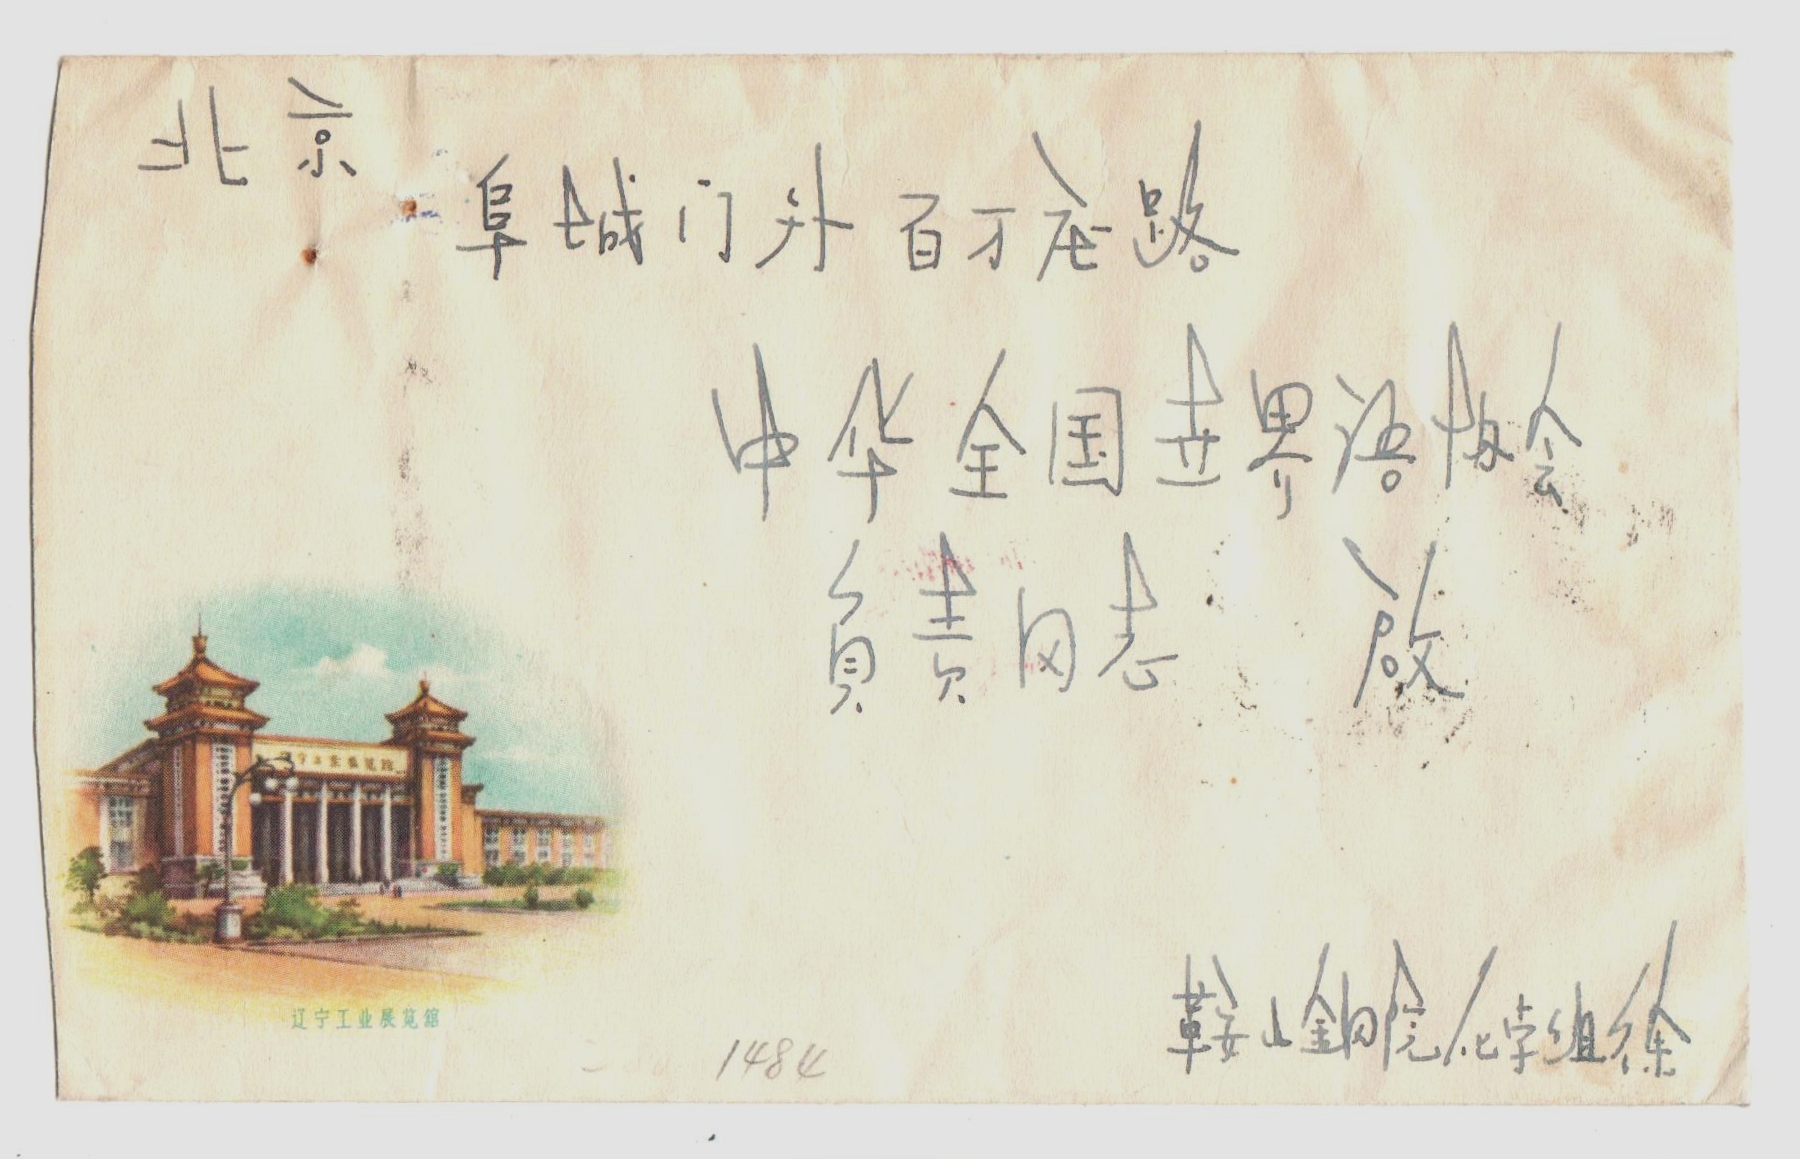 北京
阜城门外百万庄路
中华全国世界语协会
負責同志 啟
鞍山鋼院化学组徐
辽宁工业展览館
1484